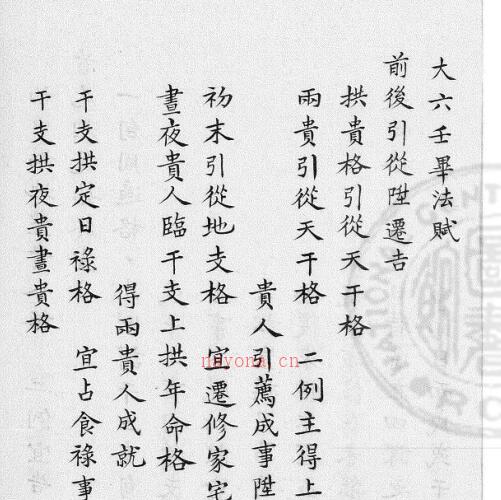 大六壬畢法賦
前後引從陞遷吉
拱貴格引從天干格
兩貴引從天干格 二例主得上
貴人引薦成事陞
初末引從地支格 宜遷修家宅
晝夜貴人臨干支上拱年命格
得兩貴人成就
干支拱定日祿格 宜占食祿事
干支拱夜貴晝貴格
nayona.cn